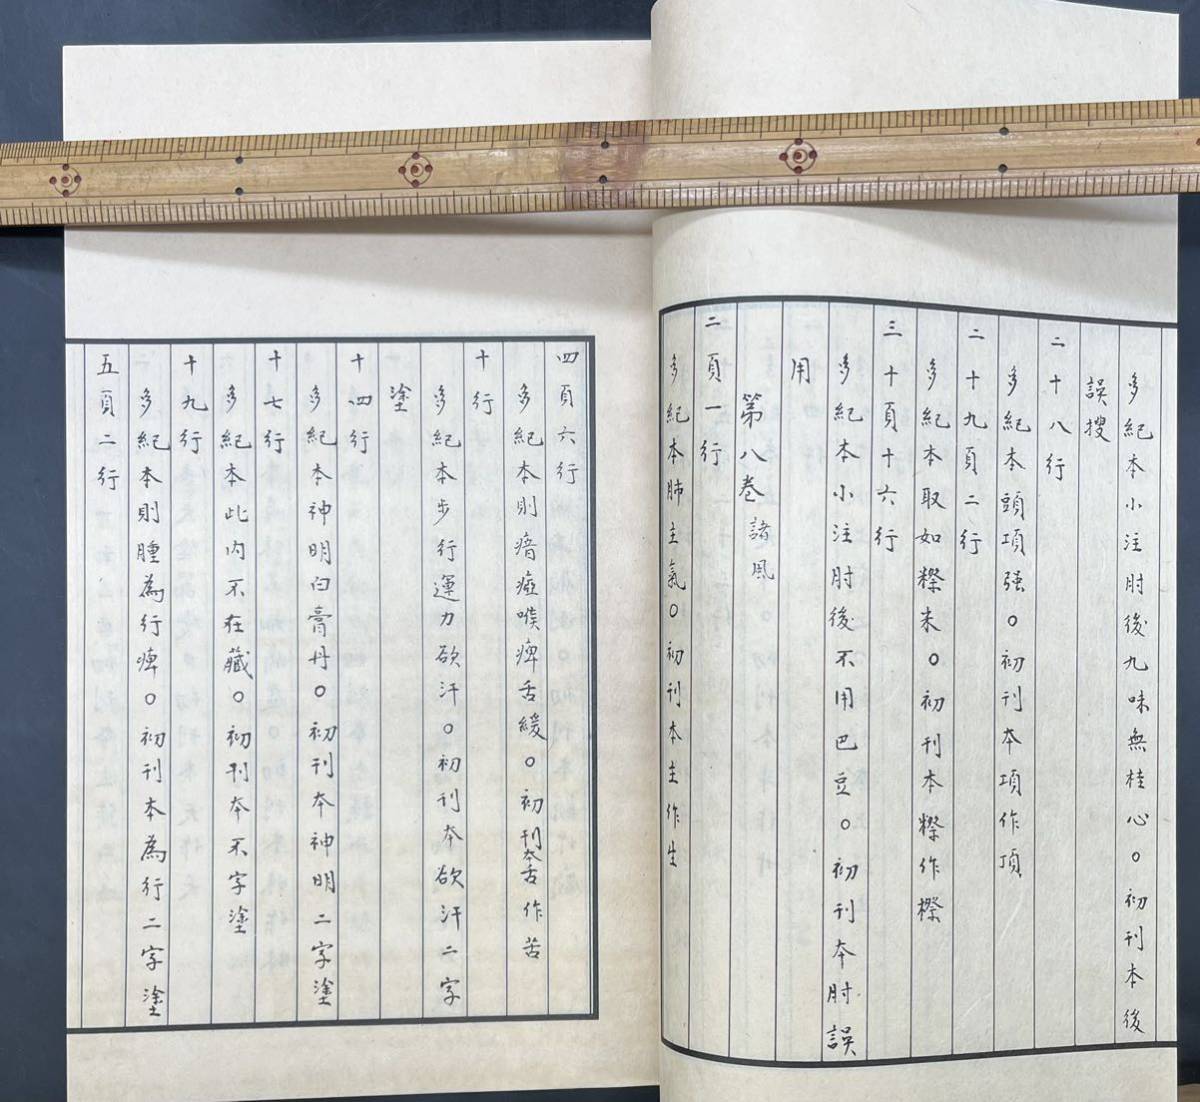 多紀本小注肘後九味無桂心。初刊本後
誤搜
二十八行
多紀本頭項强。初刊本項作頂
二十九頁二行
多紀本取如粽米。初刊本粽作樑
三十頁十六行
多紀本小注肘後不用巴豆。初刊本肘誤
用
第八巻 諸風
二頁一行
多紀本肺主氣。初刊本主作生
四頁六行
多紀本則瘖瘂喉痺舌緩。初刊本舌作苦
十行
多紀本步行運力欲汗。初刊本欲汗二字
塗
十四行
多紀本神明白膏丹。初刊本神明二字塗
十七行
多紀本此内不在藏。初刊本不字塗
十九行
多紀本則腫為行痺。初刊本為行二字塗
五頁二行